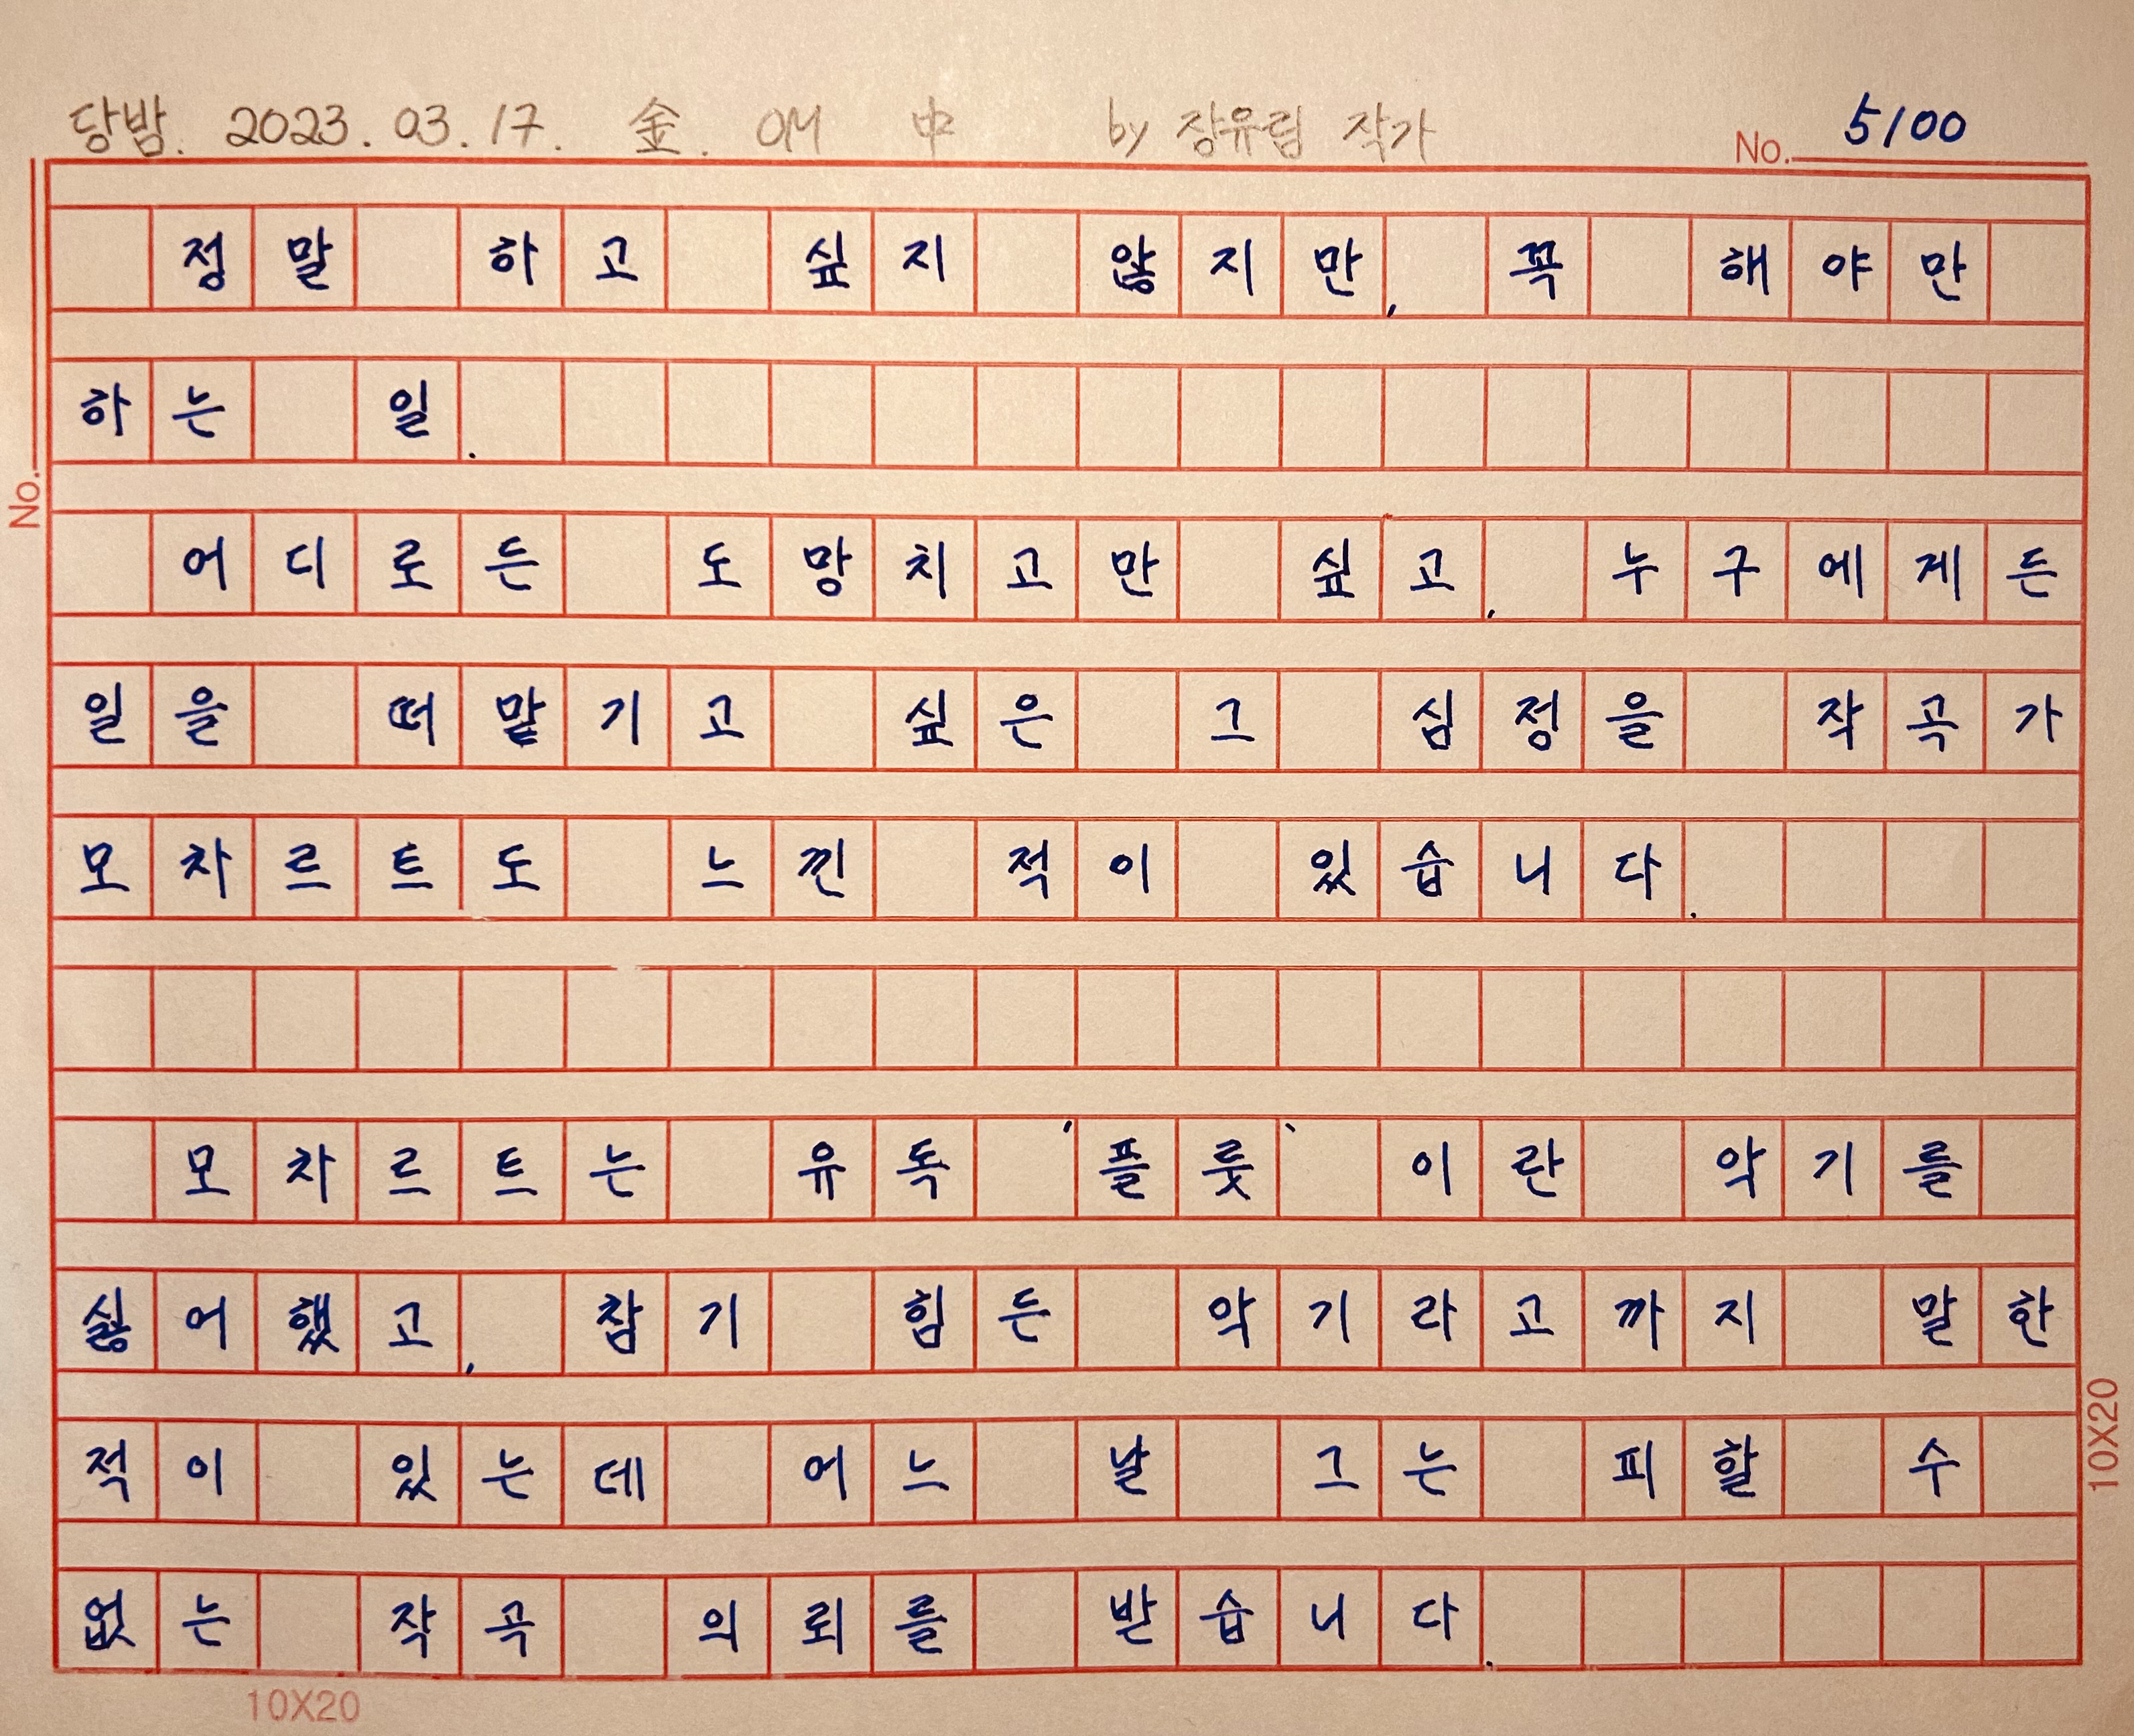 당밤. 2023.03.17. 金. OM 中 by 장유림 작가
No. 5100
정말 하고 싶지 않지만, 꼭 해야만
하는 일.
No.
어디로든 도망치고만 싶고, 누구에게든
일을 떠맡기고 싶은 그 심정을 작곡가
모차르트도 느낀 적이 있습니다.
모차르트는 유독 '플룻' 이란 악기를
싫어했고, 참기 힘든 악기라고까지 말한
적이 있는데 어느 날 그는 피할 수
없는 작곡 의뢰를 받습니다.
10X20
10X20